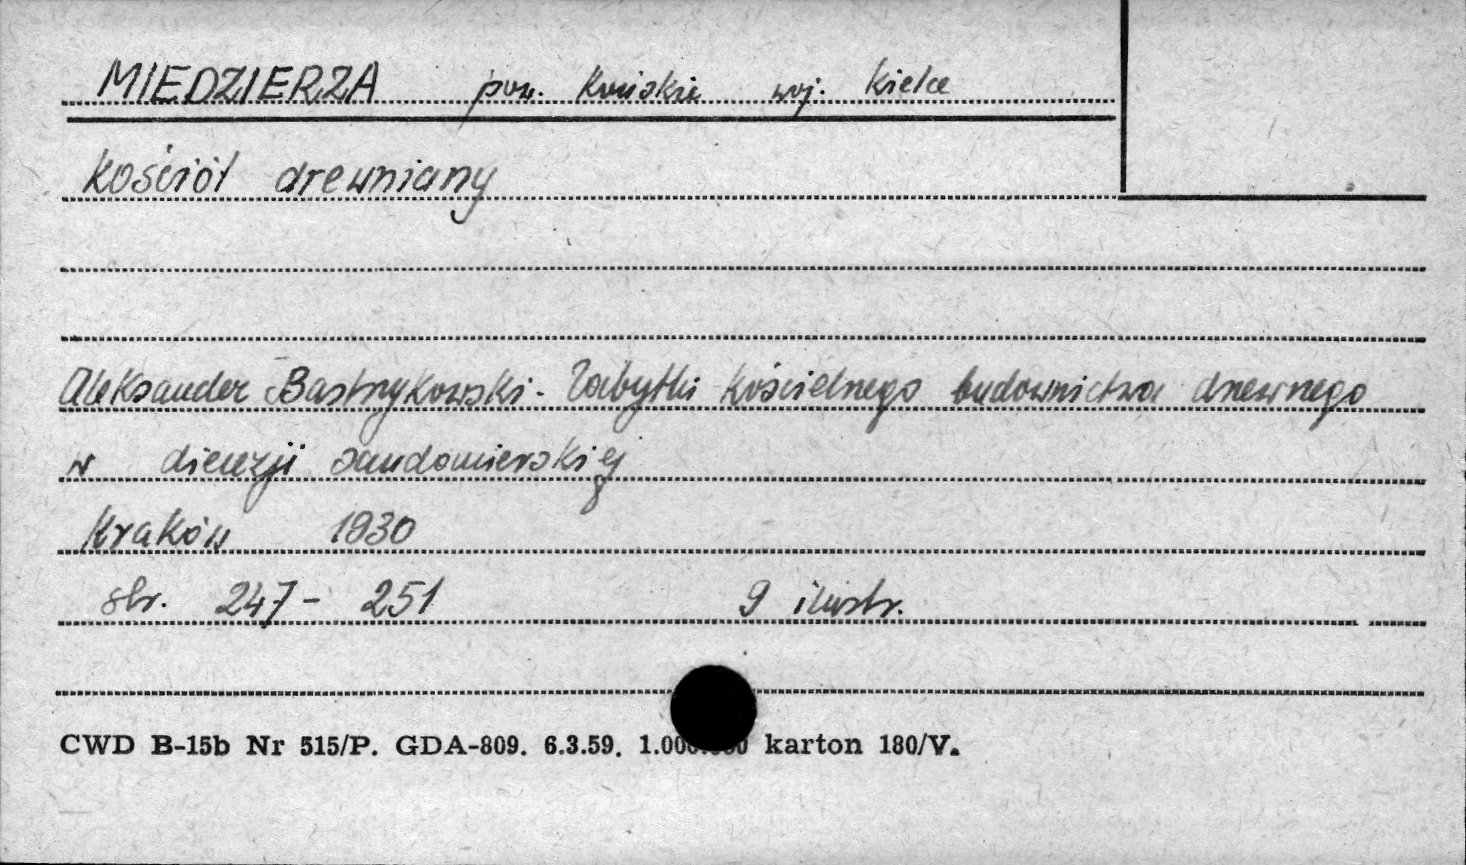 MIEDZIERZA pow. Końskie woj. Kielce
Kościół drewniany
Aleksander Bastrzykowski - Zabytki kościelnego budownictwa drzewnego
w diecezji sandomierskiej
Kraków 1930
str. 247 - 251 9 ilustr.
CWD B-15b Nr 515/P. GDA-809. 6.3.59. karton 180/V.